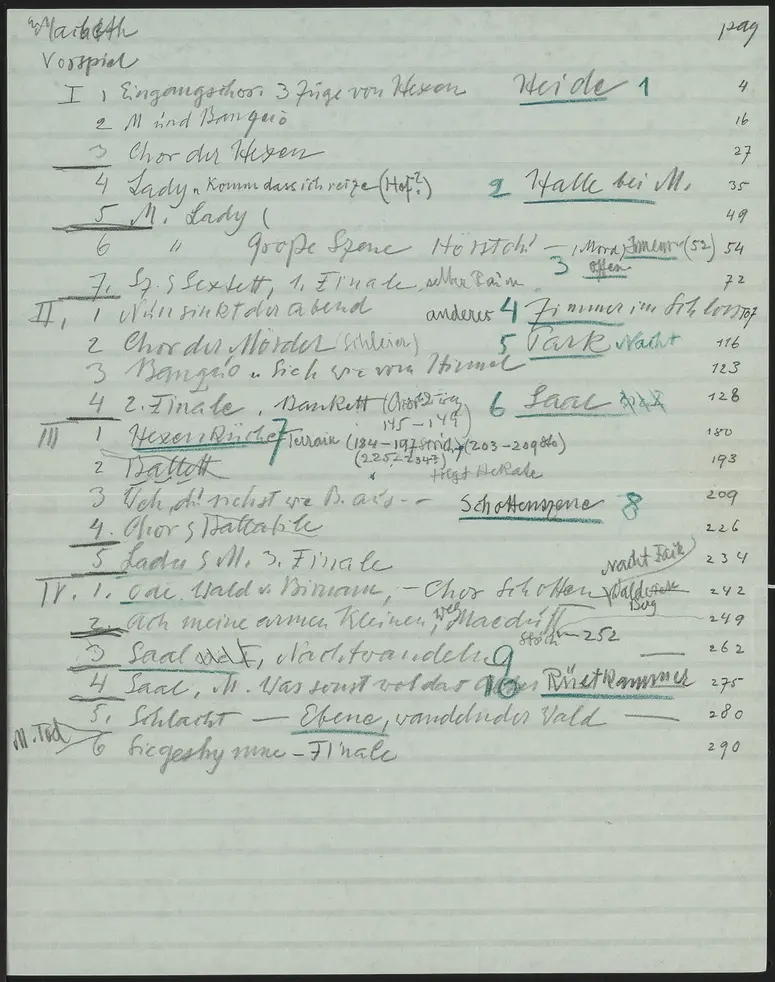 Macbeth pag
Vorspiel
I 1 Eingangschor: 3 Züge von Hexen Heide 1 4
2 M und Banquo 16
3 Chor der Hexen 27
4 Lady "Komm dass ich reize (Hof?) 2 Halle bei M. 35
5 M. Lady ( 49
6 " Große Szene Horstch! – (52) 54
3 offen
7. Sz. & Sextett, 1. Finale, selber Raum 72
II, 1 Nun sinkt der Abend anderer 4 Zimmer im Schloss
2 Chor der Mörder (Schleier) 5 Park Nacht 116
3 Banquo " Sich wie vom Himmel 123
4 2. Finale, Bankett (Chor 6 Saal 128
145–149
III 1 Hexenküche 7 Terrain (184–197 Strich) (203–209 180
2 Ballett 193
fliegt Hekate
3 Weh, du siehst wie B. aus -- Schottenszene 8 209
4. Chor & Ballabile 226
5 Lady & M. 3. Finale 234
Nacht
IV. 1. Öde. Wald v. Birnam, – Chor Schotten 242
2. Ach meine armen Kleinen, weg Macduff 249
252
3 Saal, Nachtwandeln 9 — 262
4 Saal, M. Was sonst wol das 10 Rüstkammer 275
5. Schlacht — Ebene, wandelnder Wald — 280
M. Tod
6 Siegeshymne – Finale 290